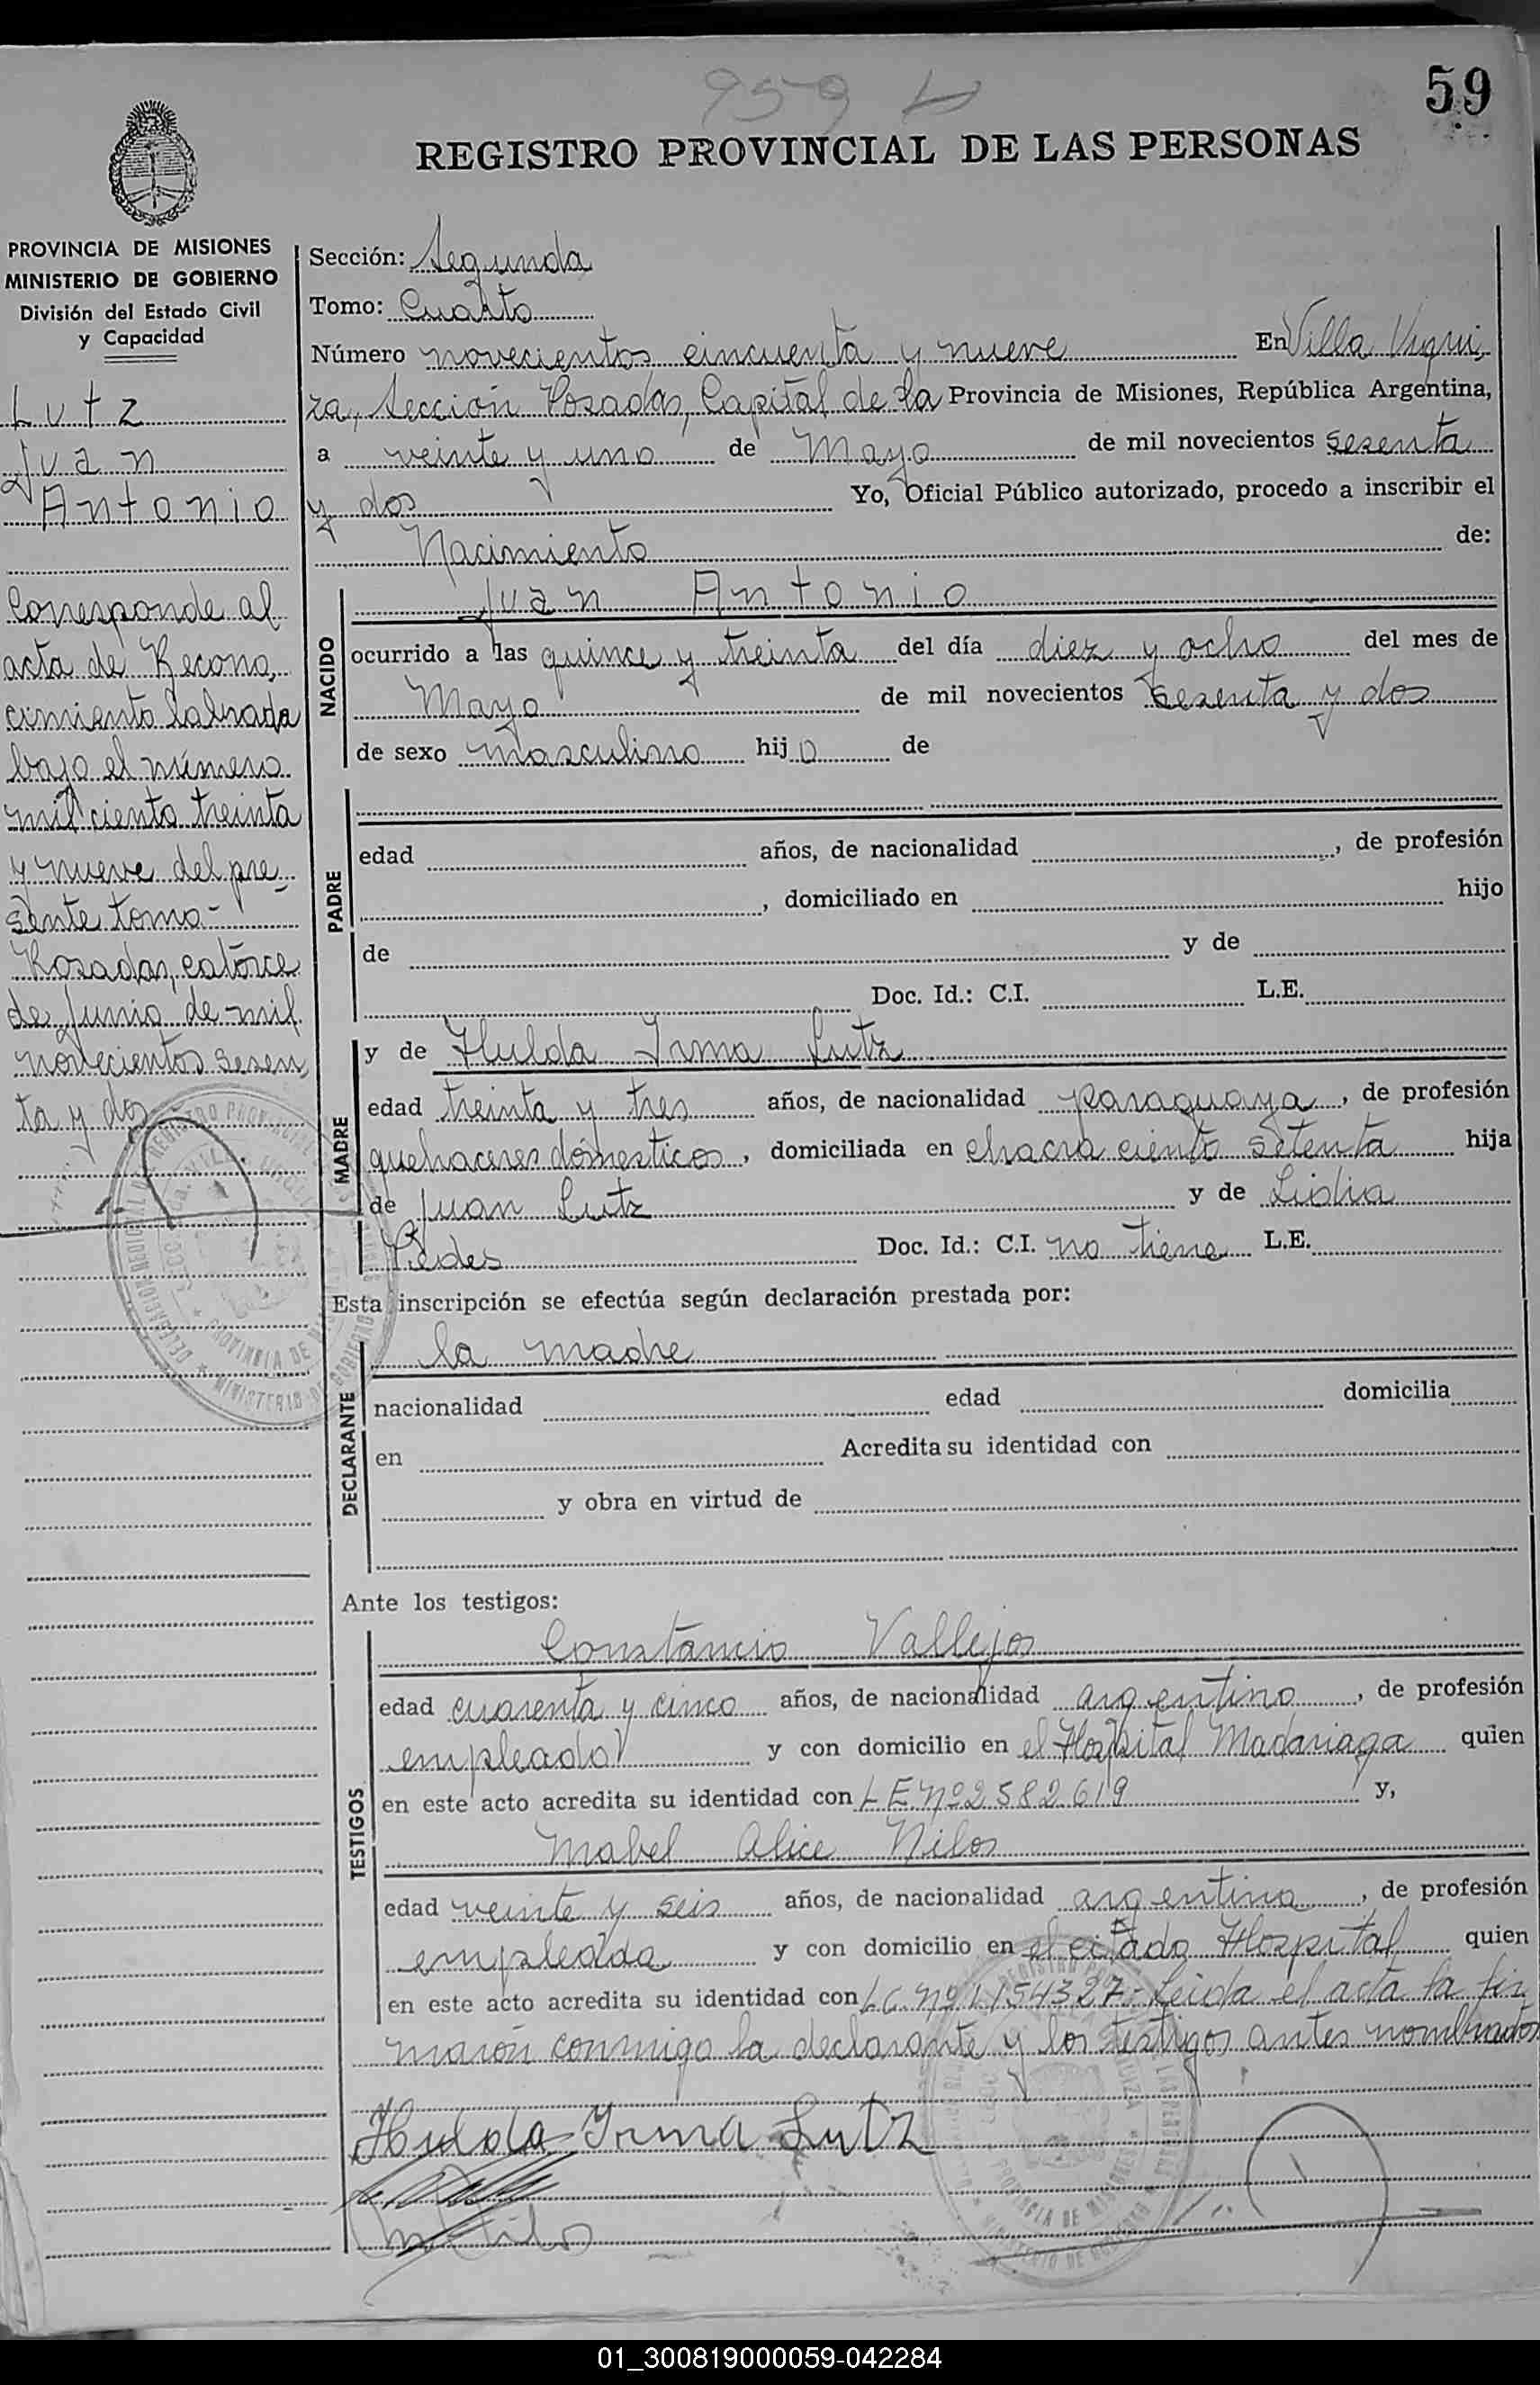 959
59
REGISTRO PROVINCIAL DE LAS PERSONAS
PROVINCIA DE MISIONES
MINISTERIO DE GOBIERNO
División del Estado Civil
y Capacidad
Lutz
Juan
Antonio
Corresponde al
acta de Recono,
cimiento labrada
bajo el número
mil ciento treinta
y nueve del pre,
sente tomo-
Posadas, catorce
de Junio de mil
novecientos sesen,
ta y dos
Sección: Segunda
Tomo: Cuarto
Número novecientos cincuenta y nueve En Villa Urqui,
za, Sección Posadas, Capital de la Provincia de Misiones, República Argentina,
a veinte y uno de Mayo de mil novecientos sesenta
y dos Yo, Oficial Público autorizado, procedo a inscribir el
Nacimiento de:
NACIDO
Juan Antonio
ocurrido a las quince y treinta del día diez y ocho del mes de
Mayo de mil novecientos sesenta y dos
de sexo masculino hijo de
PADRE
edad años, de nacionalidad , de profesión
, domiciliado en hijo
de y de
Doc. Id.: C.I. L.E.
MADRE
y de Hulda Irma Lutz
edad treinta y tres años, de nacionalidad paraguaya, de profesión
quehaceres domesticos, domiciliada en chacra ciento setenta hija
de Juan Lutz y de Lidia
Doc. Id.: C.I. no tiene L.E.
Esta inscripción se efectúa según declaración prestada por:
DECLARANTE
la madre
nacionalidad edad domicilia
en Acredita su identidad con
y obra en virtud de
Ante los testigos:
TESTIGOS
Constancio Vallejos
edad cuarenta y cinco años, de nacionalidad argentino, de profesión
empleado y con domicilio en el Hospital Madariaga quien
en este acto acredita su identidad con L E. Nº 2582.619 y,
Mabel Alice Nilos
edad veinte y seis años, de nacionalidad argentina, de profesión
empleada y con domicilio en el citado Hospital quien
en este acto acredita su identidad con L.C. Nº 1.154327.- Leida el acta la fir,
maron conmigo la declarante y los testigos antes nombrados
Hulda Irma Lutz
01_300819000059-042284